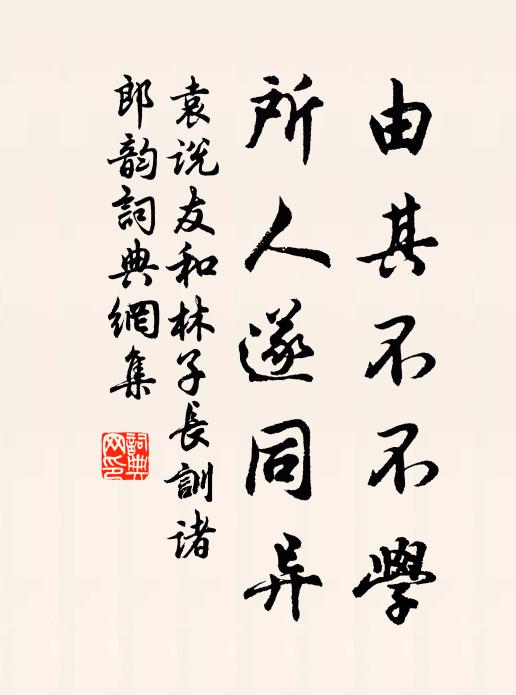 由其不不學
所人遂同异
袁說友和林子長訓諸
郎韵詞典網集
詞典网印